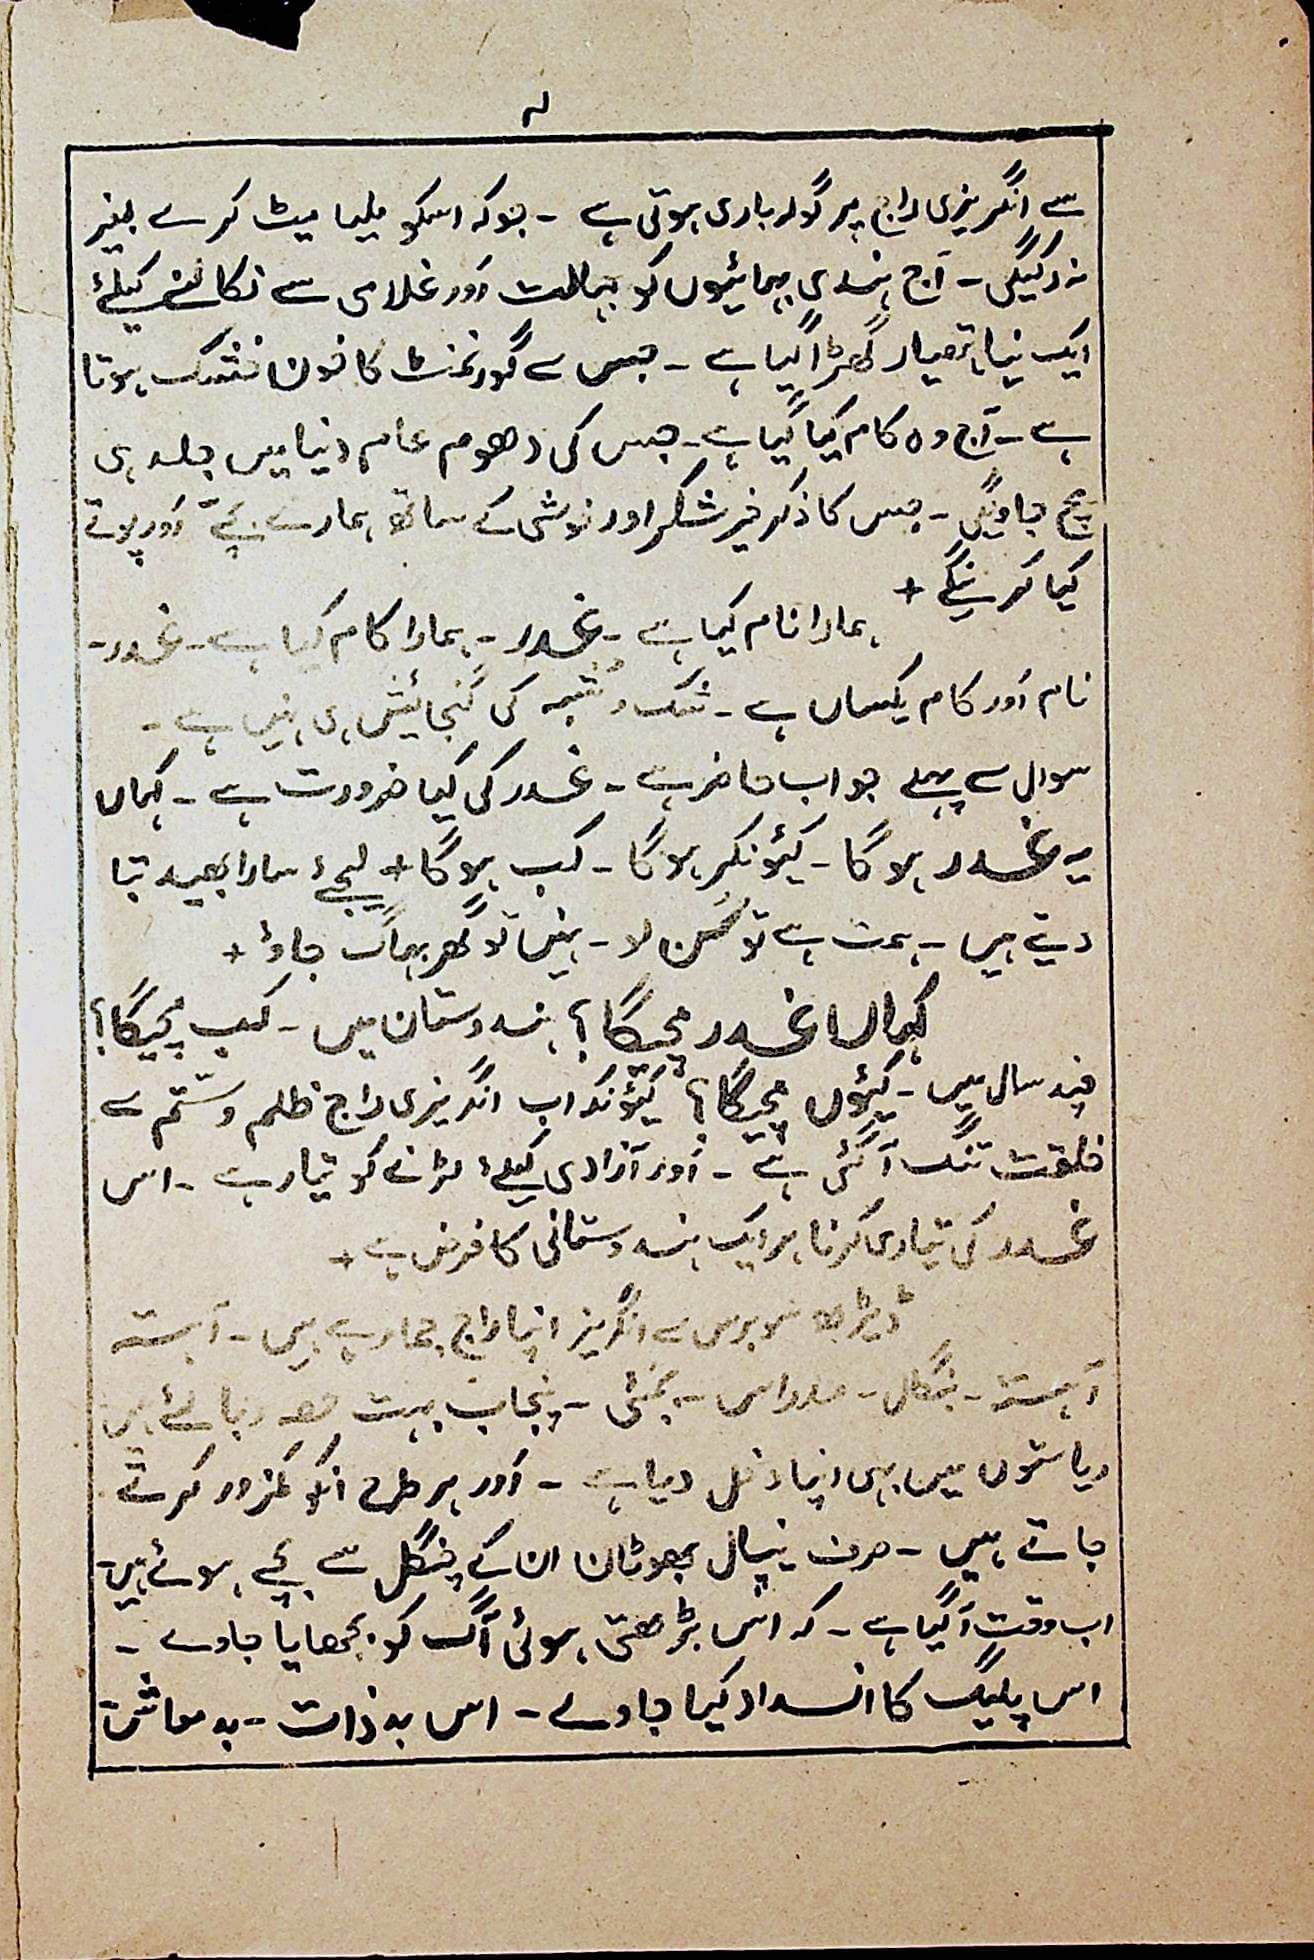 سے انگریزی راج پر گولہ باری ہوتی ہے ۔ جوکہ اسکو ملیا میٹ کرے بغیر
نہ رکیگی ۔ آج ہندی بھائیوں کو جہالت اور غلامی سے نکالنے کیلئے
ایک نیا ہتھیار گھڑا گیا ہے ۔ جس سے گورنمنٹ کا خون خشک ہوتا
ہے ۔ آج وہ کام کیا گیا ہے ۔ جس کی دھوم عام دنیا میں جلد ہی
مچ جاویگی ۔ جس کا ذکر خیر شکر اور خوشی کے ساتھ ہمارے بچے اور پوتے
کیا کرینگے +
ہمارا نام کیا ہے ۔ غدر ۔ ہمارا کام کیا ہے ۔ غدر ۔
نام اور کام یکساں ہے ۔ شک و شبہ کی گنجائیش ہی نہیں ہے ۔
سوال سے پہلے جواب حاضر ہے ۔ غدر کی کیا ضرورت ہے ۔ کہاں
یہ غدر ہوگا ۔ کیونکر ہوگا ۔ کب ہوگا + لیجئے سارا بھید بتا
دیتے ہیں ۔ ہمت ہے تو سُن لو ۔ نہیں تو گھر بھاگ جاؤ +
کہاں غدر مچیگا؟ ہندوستان میں ۔ کب مچیگا؟
چند سال میں ۔ کیوں مچیگا؟ کیونکہ اب انگریزی راج ظلم و ستم سے
خلقت تنگ آ گئی ہے ۔ اور آزادی کیلئے لڑنے کو تیار ہے ۔ اس
غدر کی تیاری کرنا ہر ایک ہندوستانی کا فرض ہے +
ڈیڑھ سو برس سے انگریز اپنا راج جما رہے ہیں ۔ آہستہ
آہستہ ۔ بنگال ۔ مدراس ۔ بمبئی ۔ پنجاب بہت حصہ دبا لئے ہیں
ریاستوں میں بہی اپنا دخل دیا ہے ۔ اور ہر طرح انکو کمزور کرتے
جاتے ہیں ۔ صرف نیپال بھوٹان ان کے چنگل سے بچے ہوئے ہیں
اب وقت آ گیا ہے ۔ کہ اس بڑھتی ہوئی آگ کو بجھایا جاوے ۔
اس پلیگ کا انسداد کیا جاوے ۔ اس بدذات ۔ بدمعاش